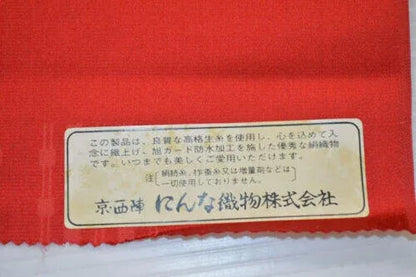 この製品は、良質な高格生糸を使用し、心を込めて入
念に織上げ、旭ガード防水加工を施した優秀な絹織物
です。いつまでも美しくご愛用いただけます。
注〔絹紡糸、柞蚕糸又は増量剤などは
一切使用しておりません。〕
京・西陣 にんな織物株式会社